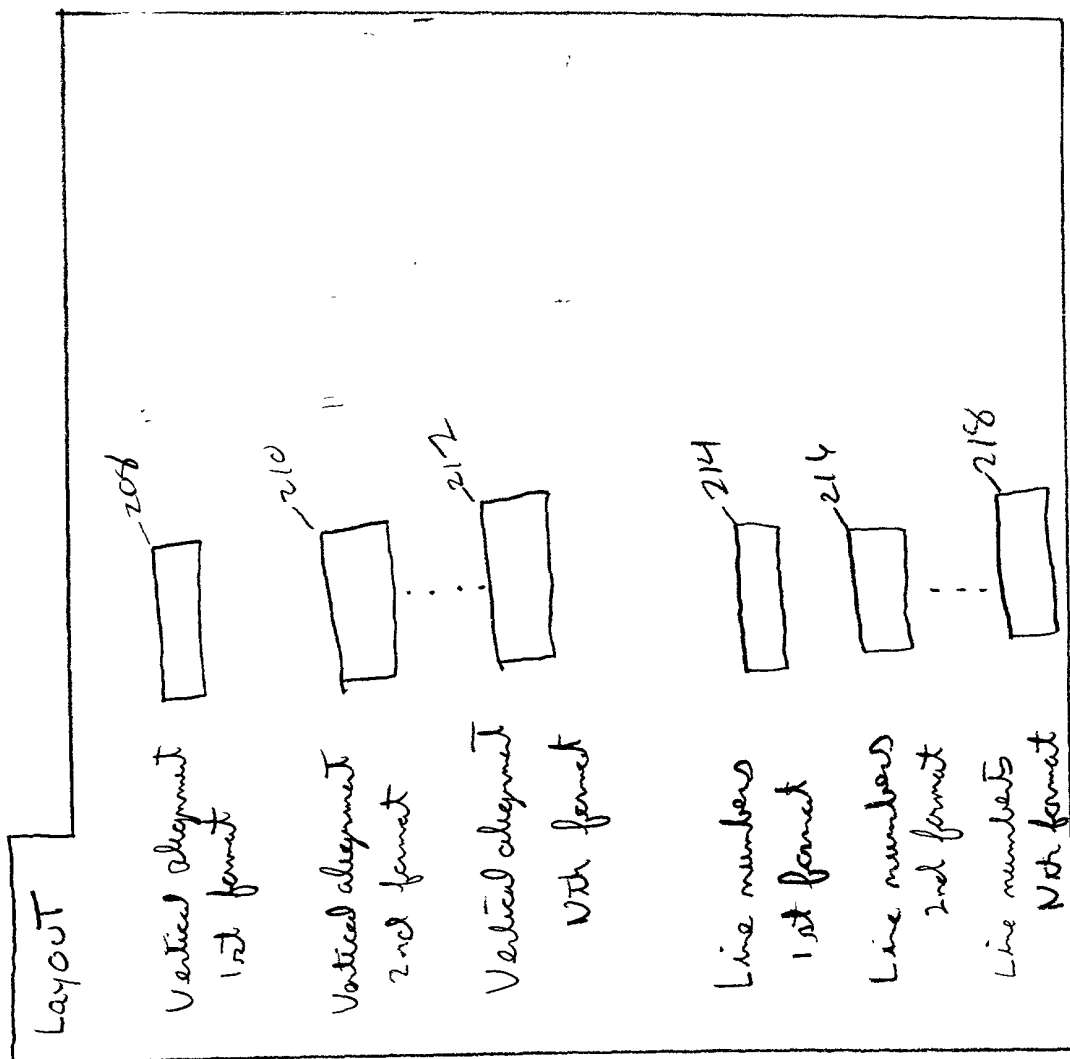 Layout
Vertical alignment
1st format
208
Vertical alignment
2nd format
210
Vertical alignment
Nth format
212
Line numbers
1st format
214
Line numbers
2nd format
216
Line numbers
Nth format
218